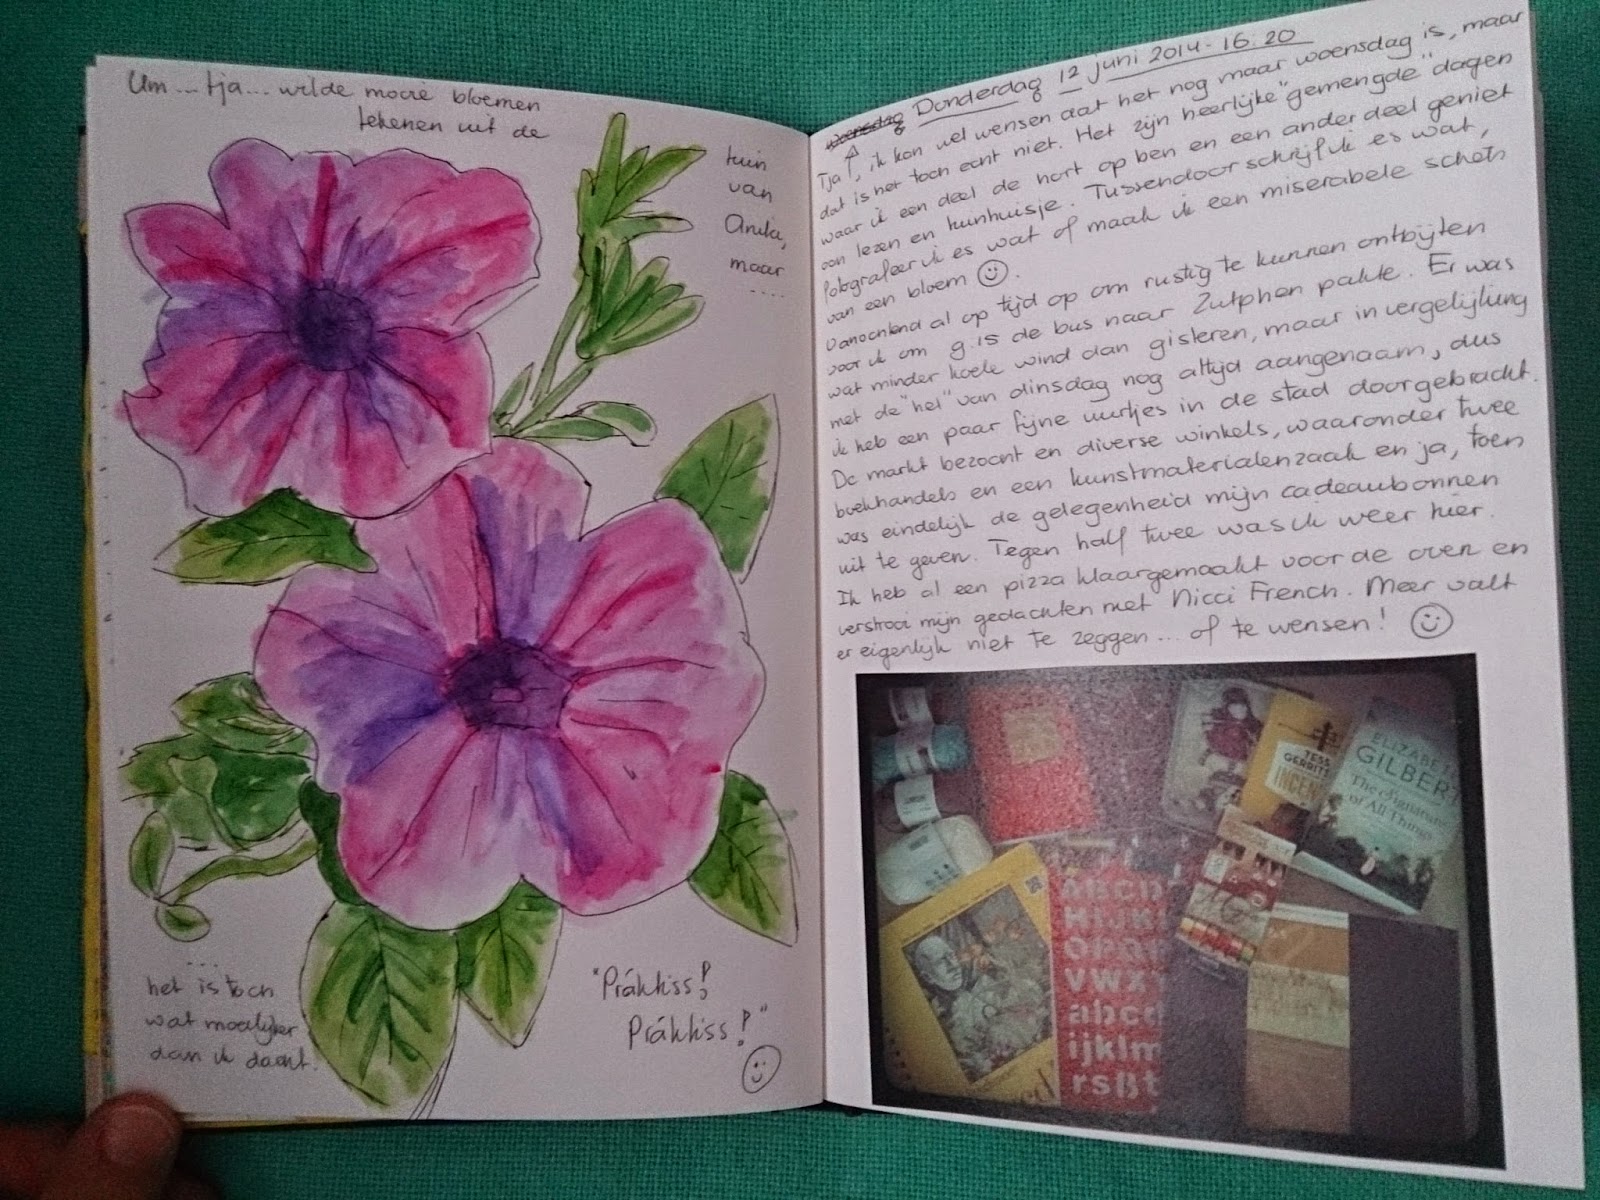 Um... tja... wilde mooie bloemen
tekenen uit de
tuin
van
Anita,
maar
....
...
het is toch
wat moeilijker
dan ik dacht.
"Prákkiss!
Prákkiss!"
woensdag Donderdag 12 juni 2014 - 16:20
Tja, ik kon wel wensen dat het nog maar woensdag is, maar
dat is het toch echt niet. Het zijn heerlijke "gemengde" dagen
waar ik een deel de hort op ben en een ander deel geniet
van lezen en tuinhuisje. Tussendoor schrijf ik es wat,
fotografeer ik es wat of maak ik een miserabele schets
van een bloem
Vanochtend al op tijd op om rustig te kunnen ontbijten
voor ik om 9.15 de bus naar Zutphen pakte. Er was
wat minder koele wind dan gisteren, maar in vergelijking
met de "hel" van dinsdag nog altijd aangenaam, dus
ik heb een paar fijne uurtjes in de stad doorgebracht.
De markt bezocht en diverse winkels, waaronder twee
boekhandels en een kunstmaterialenzaak en ja, toen
was eindelijk de gelegenheid mijn cadeaubonnen
uit te geven. Tegen half twee was ik weer hier.
Ik heb al een pizza klaargemaakt voor de oven en
verstrooi mijn gedachten met Nicci French. Meer valt
er eigenlijk niet te zeggen... of te wensen!
TESS
GERRITSEN
ELIZABETH
GILBERT
The Signature
of All Things
abcd
HIJK
VWXY
abcd
ijklm
rsßt